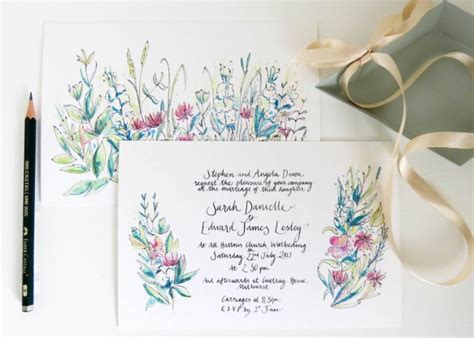 Stephen and Angela Dixon
request the pleasure of your company
at the marriage of their daughter
Sarah Danielle
to
Edward James Lesley
At All Hallows Church,
Saturday 22nd July 2017
At 2.30pm
And afterwards at House,
Carriages at 11.30pm
RSVP by 1st June